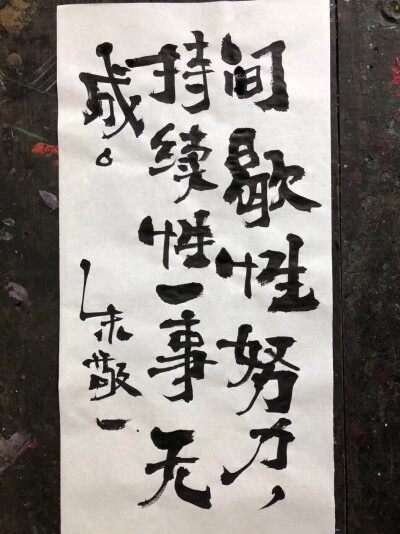 间歇性努力，
持续性一事无
成。
朱敬一